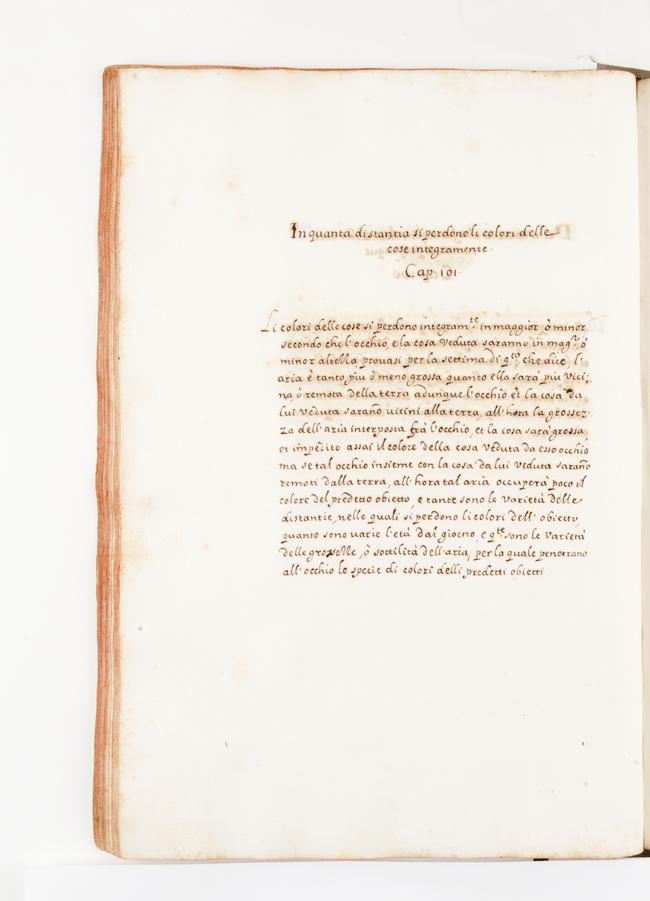 In quanta distantia si perdono li colori delle
cose integramente.
Cap. 101.
Li colori delle cose si perdono integram.te in maggior, ò minor
secondo che l'occhio, e la cosa veduta saranno in magg.r ò
minor altezza provasi per la settima di q.to che dice, l'
aria è tanto più ò meno grossa quanto ella sarà più vici;
na, ò remota della terra adunque l'occhio et la cosa da
lui veduta sarano vicini alla terra, all'hora la grossez-
za dell'aria interposta frà l'occhio, et la cosa sarà grossa,
et impedito assai il colore della cosa veduta da esso occhio
ma se tal occhio insieme con la cosa da lui veduta sarano
remoti dalla terra, all'hora tal aria occuperà poco il
colore del predetto obietto, e tante sono le varietà delle
distantie, nelle quali si perdono li colori dell'obietto,
quanto sono varie l'età dal giorno, e q.te sono le varietà
delle grozelle, ò sottilità dell'aria, per la quale penetrano
all'occhio le specie di colori delli predetti obietti